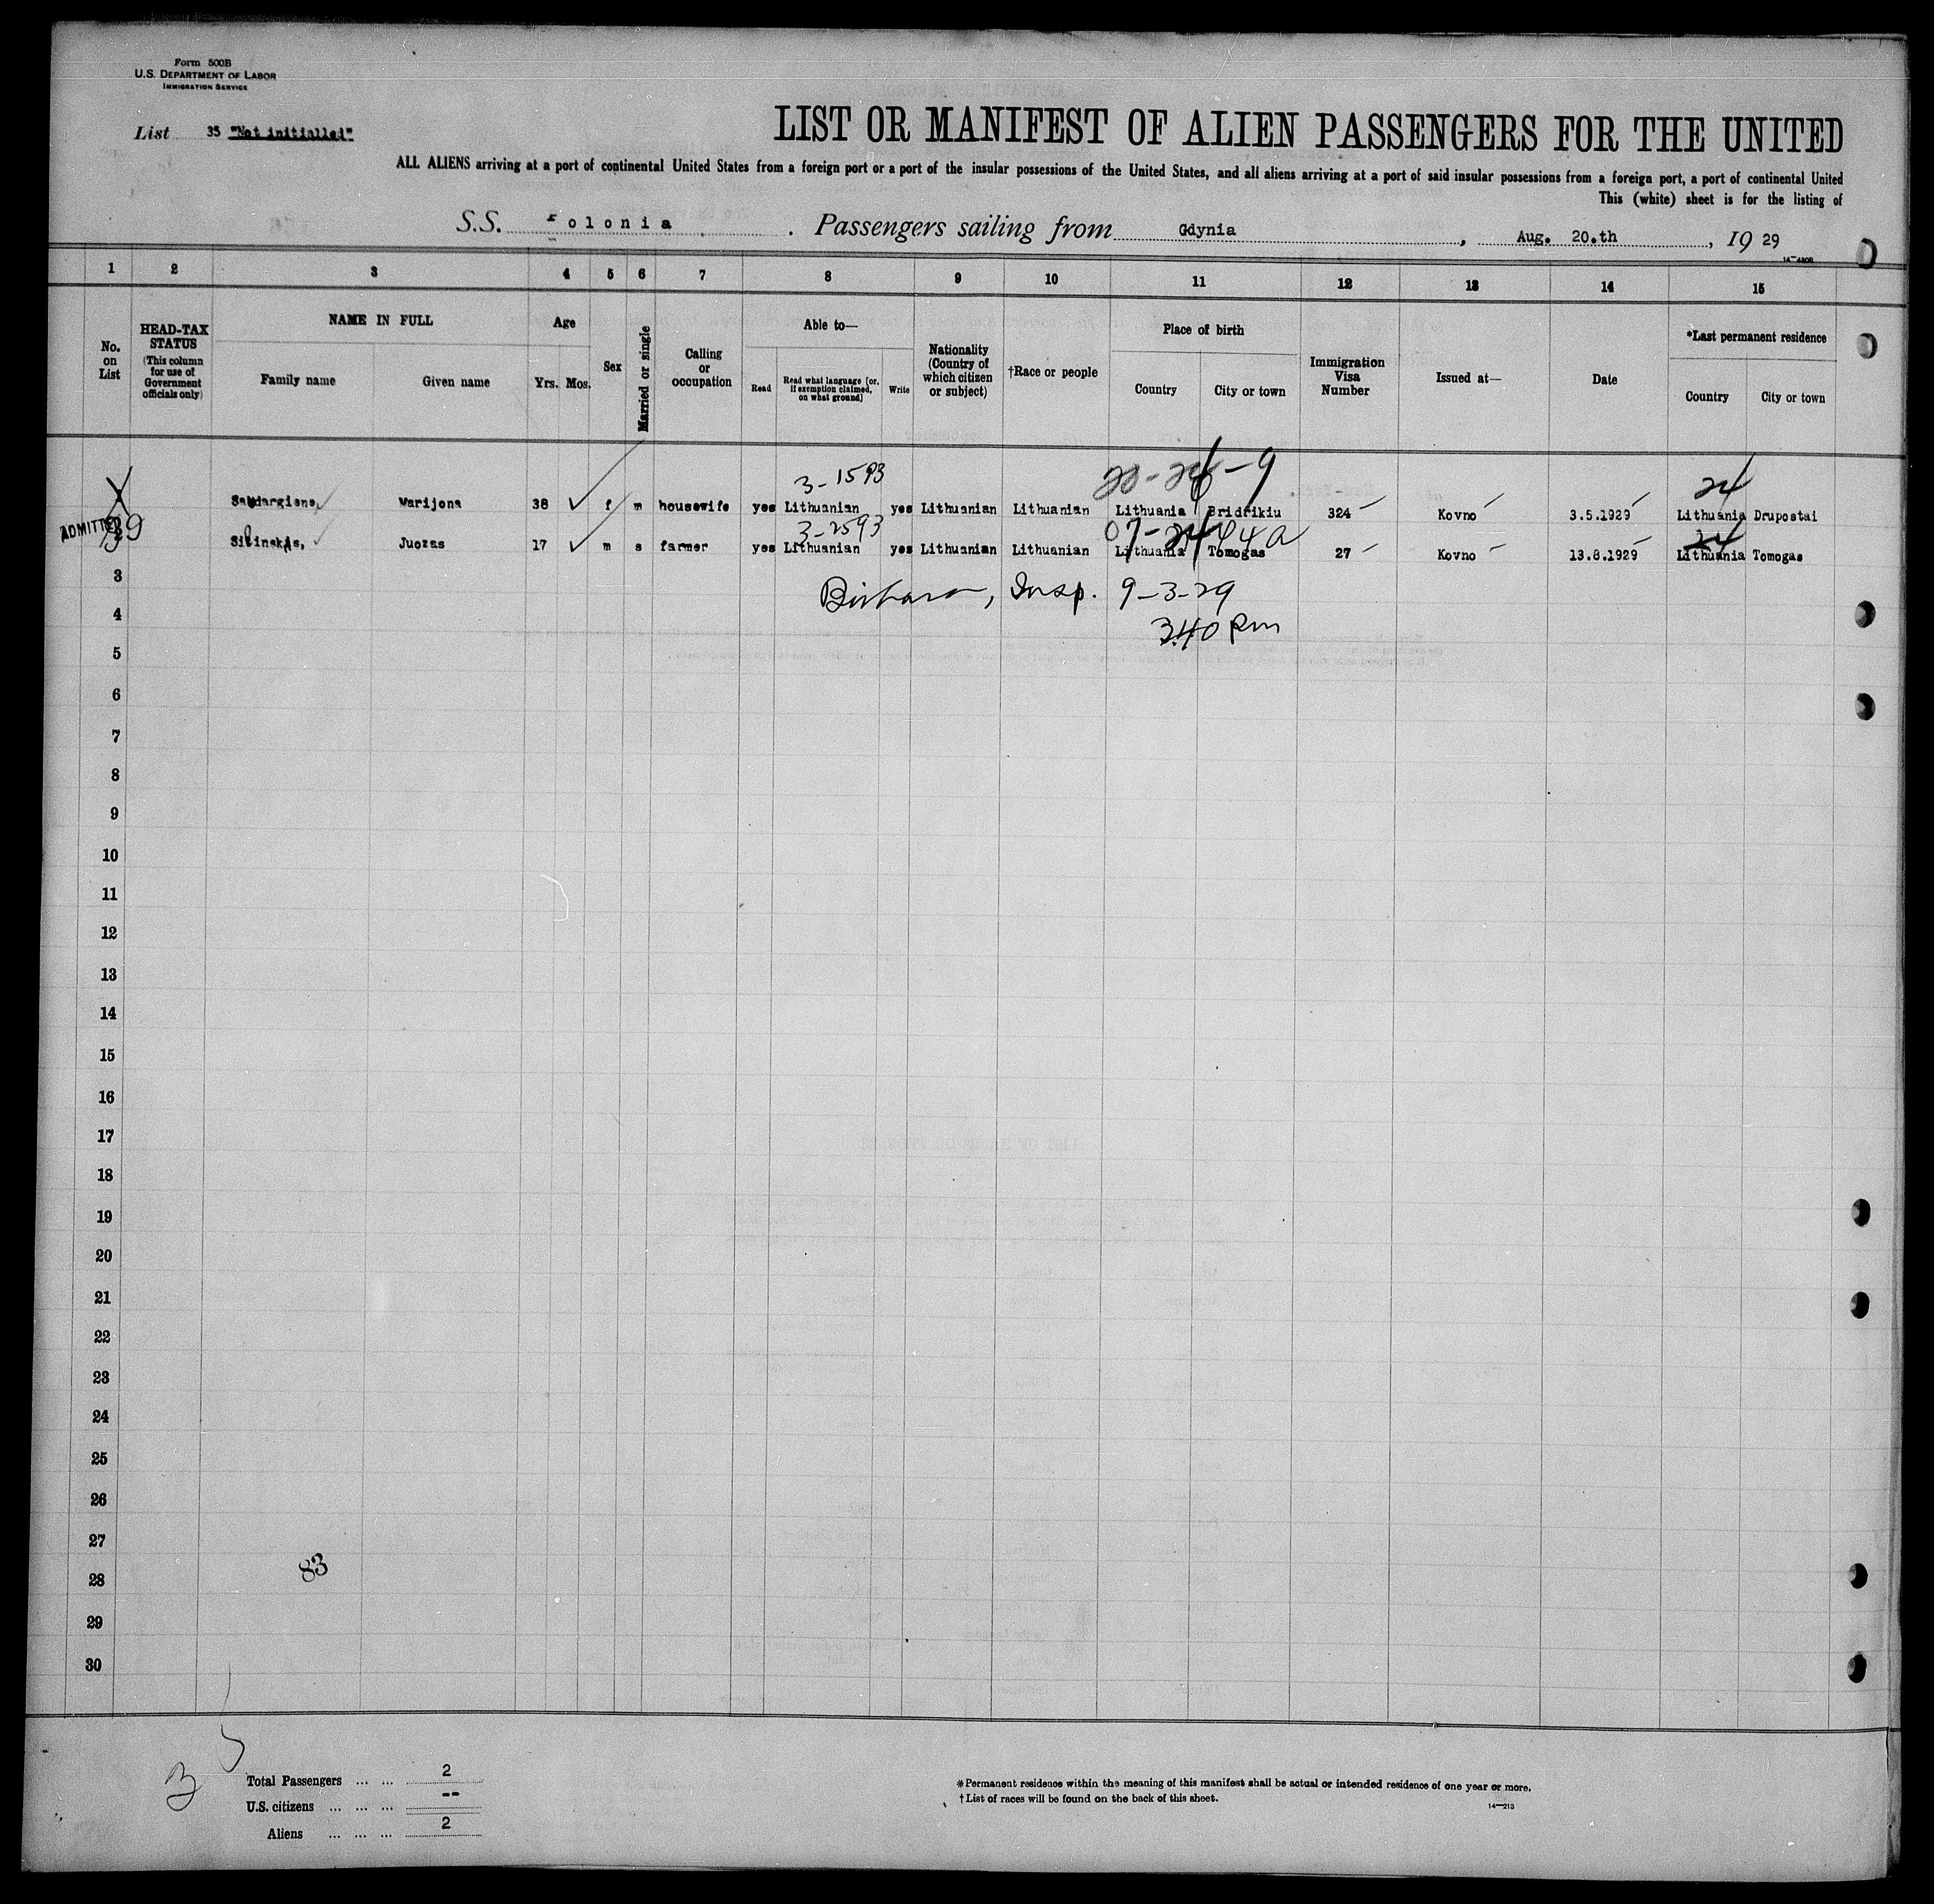 Form 500B
U.S. DEPARTMENT OF LABOR
IMMIGRATION SERVICE
List 35 "Not initialled"
LIST OR MANIFEST OF ALIEN PASSENGERS FOR THE UNITED
ALL ALIENS arriving at a port of continental United States from a foreign port or a port of the insular possessions of the United States, and all aliens arriving at a port of said insular possessions from a foreign port, a port of continental United
This (white) sheet is for the listing of
S.S. Polonia. Passengers sailing from Gdynia, Aug. 20.th, 1929
1 2 3 4 5 6 7 8 9 10 11 12 13 14 15
No. on List
HEAD-TAX STATUS
(This column for use of Government officials only)
NAME IN FULL
Family name
Given name
Age
Yrs. Mos.
Sex
Married or single
Calling or occupation
Able to—
Read
Read what language [or, if exemption claimed, on what ground]
Write
Nationality (Country of which citizen or subject)
†Race or people
Place of birth
Country
City or town
Immigration Visa Number
Issued at—
Date
*Last permanent residence
Country
City or town
3-1593
24
Marijona 38 f m housewife yes Lithuanian yes Lithuanian Lithuanian Lithuania Bridrikiu 324 Kovno 3.5.1929 Lithuania Drupostai
3-2593
24
ADMITTED
Juozas 17 m s farmer yes Lithuanian yes Lithuanian Lithuanian Lithuania Tomogas 27 Kovno 13.8.1929 Lithuania Tomogas
3
Insp. 9-3-29
4
3.40 pm
5
6
7
8
9
10
11
12
13
14
15
16
17
18
19
20
21
22
23
24
25
26
27
83
28
29
30
Total Passengers ... ... 2
U.S. citizens ... ... ... --
Aliens ... ... ... 2
*Permanent residence within the meaning of this manifest shall be actual or intended residence of one year or more.
†List of races will be found on the back of this sheet.
14—213